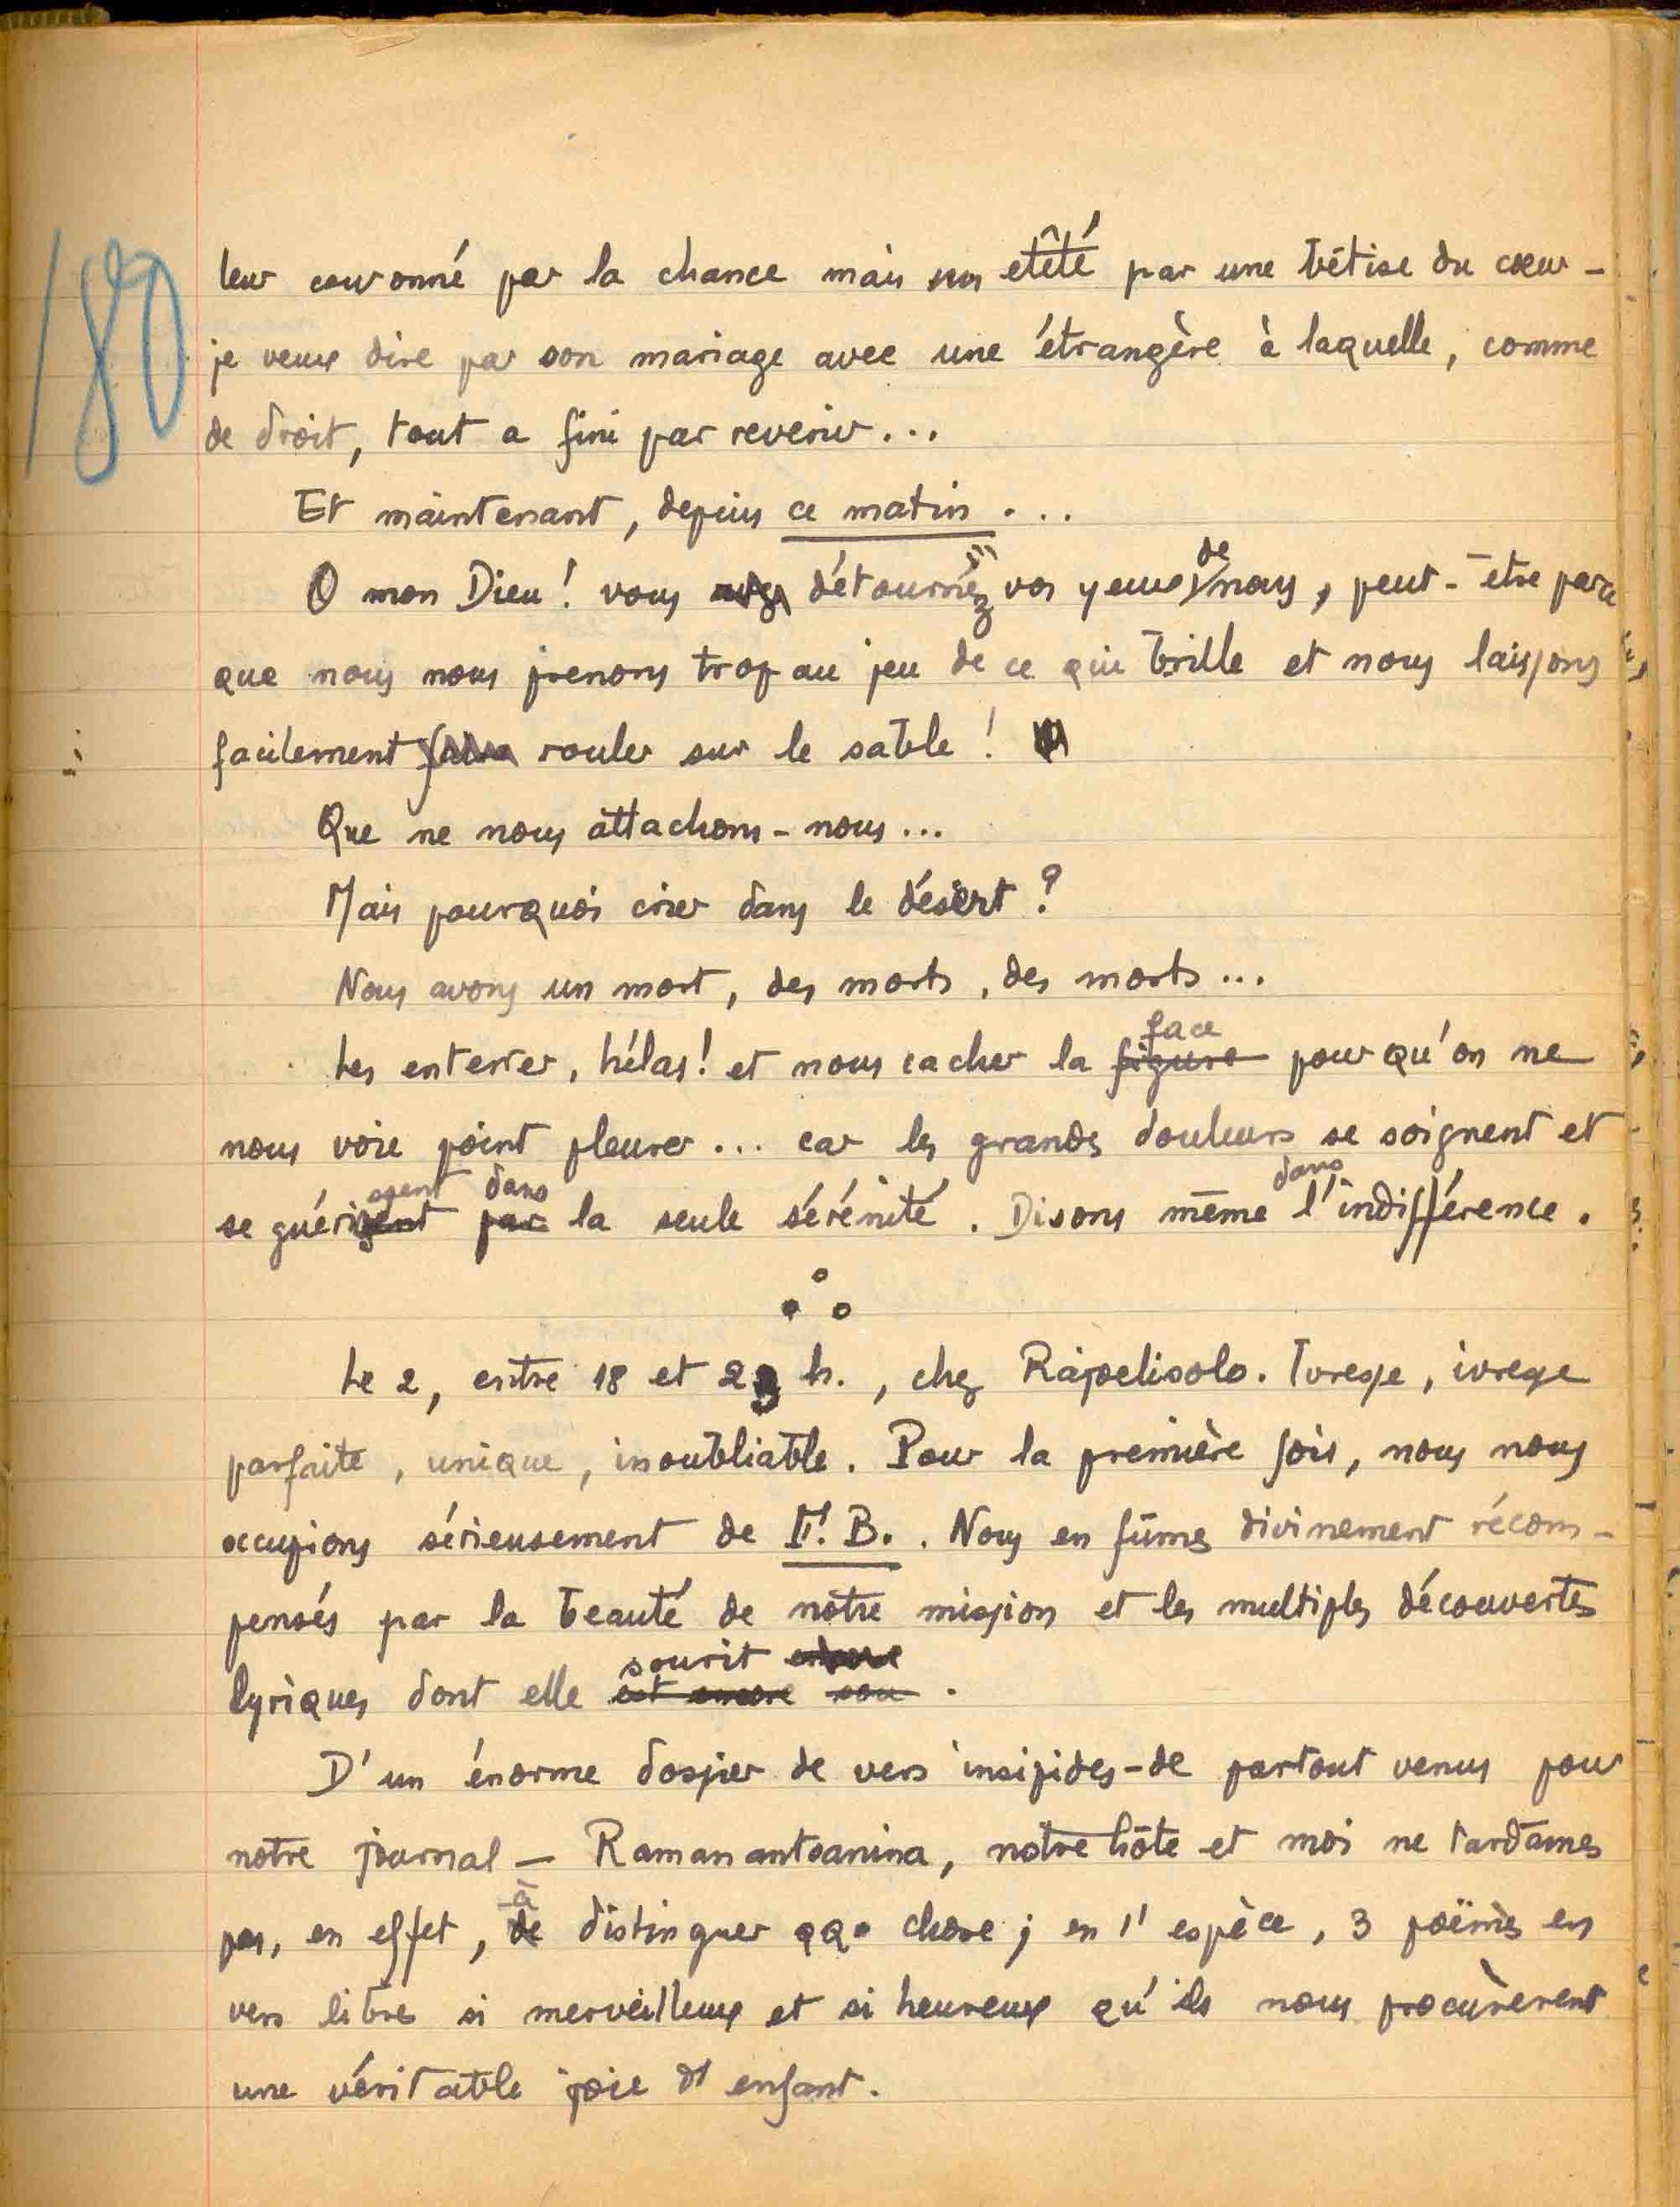 180
leur couronné par la chance mais etêté par une bêtise du cœur -
je veux dire par son mariage avec une étrangère à laquelle, comme
de droit, tout a fini par revenir...
Et maintenant, depuis ce matin...
O mon Dieu ! vous détournez vos yeux de nous, peut-être parce
que nous nous prenons trop au jeu de ce qui brille et nous laissons
facilement rouler sur le sable !
Que ne nous attachons-nous...
Mais pourquoi crier dans le désert ?
Nous avons un mort, des morts, des morts...
Les enterrer, hélas ! et nous cacher la face pour qu'on ne
nous voie point pleurer... car les grandes douleurs se soignent et
se guérissent dans la seule sérénité. Disons même dans l'indifférence.
Le 2, entre 18 et 23 h., chez Rapelisolo. Ivresse, ivresse
parfaite, unique, inoubliable. Pour la première fois, nous nous
occupions sérieusement de B.. Nous en fûmes divinement récom-
pensés par la beauté de notre mission et les multiples découvertes
lyriques dont elle sourit.
D'un énorme dossier de vers insipides - de partout venus pour
notre journal — Ramanantoanina, notre hôte et moi ne tardâmes
pas, en effet, à distinguer qqe chose ; en l'espèce, 3 poëmes en
vers libres si merveilleux et si heureux qu'ils nous procurèrent
une véritable joie d'enfant.